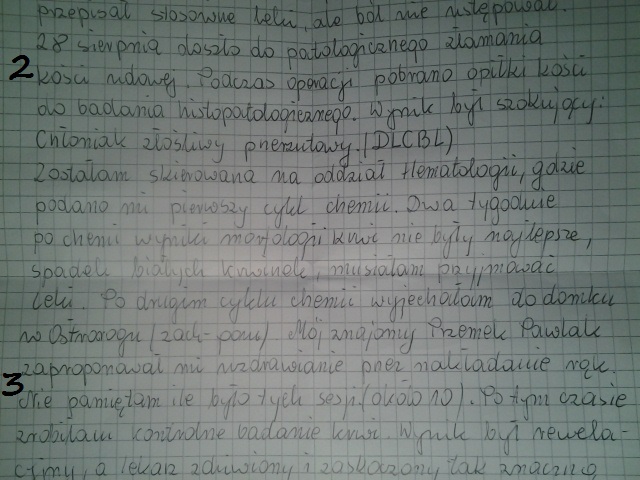 przepisał stosowne leki, ale ból nie ustępował.
28 sierpnia doszło do patologicznego złamania
2 kości udowej. Podczas operacji pobrano opiłki kości
do badania histopatologicznego. Wynik był szokujący:
Chłoniak złośliwy przerzutowy. (DLCBL)
Zostałam skierowana na oddział Hematologii, gdzie
podano mi pierwszy cykl chemii. Dwa tygodnie
po chemii wyniki morfologii krwi nie były najlepsze,
spadek białych krwinek, musiałam przyjmować
leki. Po drugim cyklu chemii wyjechałam do domku
w Ostrorogu (zach-pom). Mój znajomy Przemek Pawlak
zaproponował mi uzdrawianie przez nakładanie rąk.
3 Nie pamiętam ile było tych sesji (około 10). Po tym czasie
zrobiłam kontrolne badanie krwi. Wynik był rewela-
cyjny, a lekarz zdziwiony i zaskoczony tak znaczną